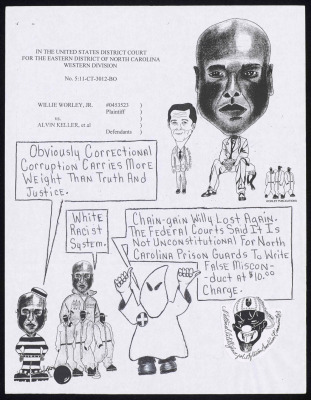 IN THE UNITED STATES DISTRICT COURT
FOR THE EASTERN DISTRICT OF NORTH CAROLINA
WESTERN DIVISION
No. 5:11-CT-3012-BO
WILLIE WORLEY, JR. #0453523 )
Plaintiff )
vs. )
ALVIN KELLER, et al )
Defendants )
Obviously Correctional
Corruption Carries More
Weight Than Truth And
Justice.
White
Racist
System.
Chain-gain Willy Lost Again.
The Federal Courts Said It Is
Not Unconstitutional For North
Carolina Prison Guards To Write
False Miscon-
duct at $10.00
Charge.